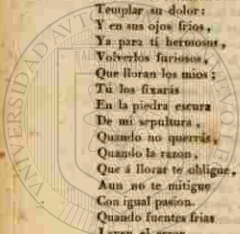 Templar su dolor:
Y en sus ojos frios,
Ya para ti hermosos,
Volverlos furiosos,
Que lloran los mios;
Tú los fixarás
En la piedra escura
De mi sepultura,
Quando no querrás,
Quando la razon,
Que á llorar te obligue,
Aun no te mitigue
Con igual pasion.
Quando fuentes frias